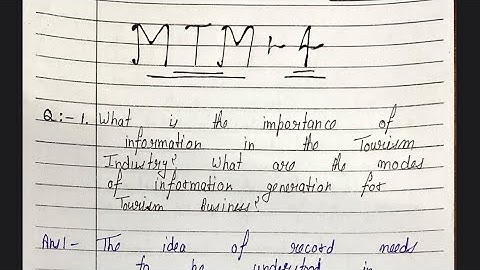 MTM - 4
Q:- 1. What is the importance of
information in the Tourism
Industry? What are the modes
of information generation for
Tourism Business?
Ans 1 - The idea of record needs
to be understood in